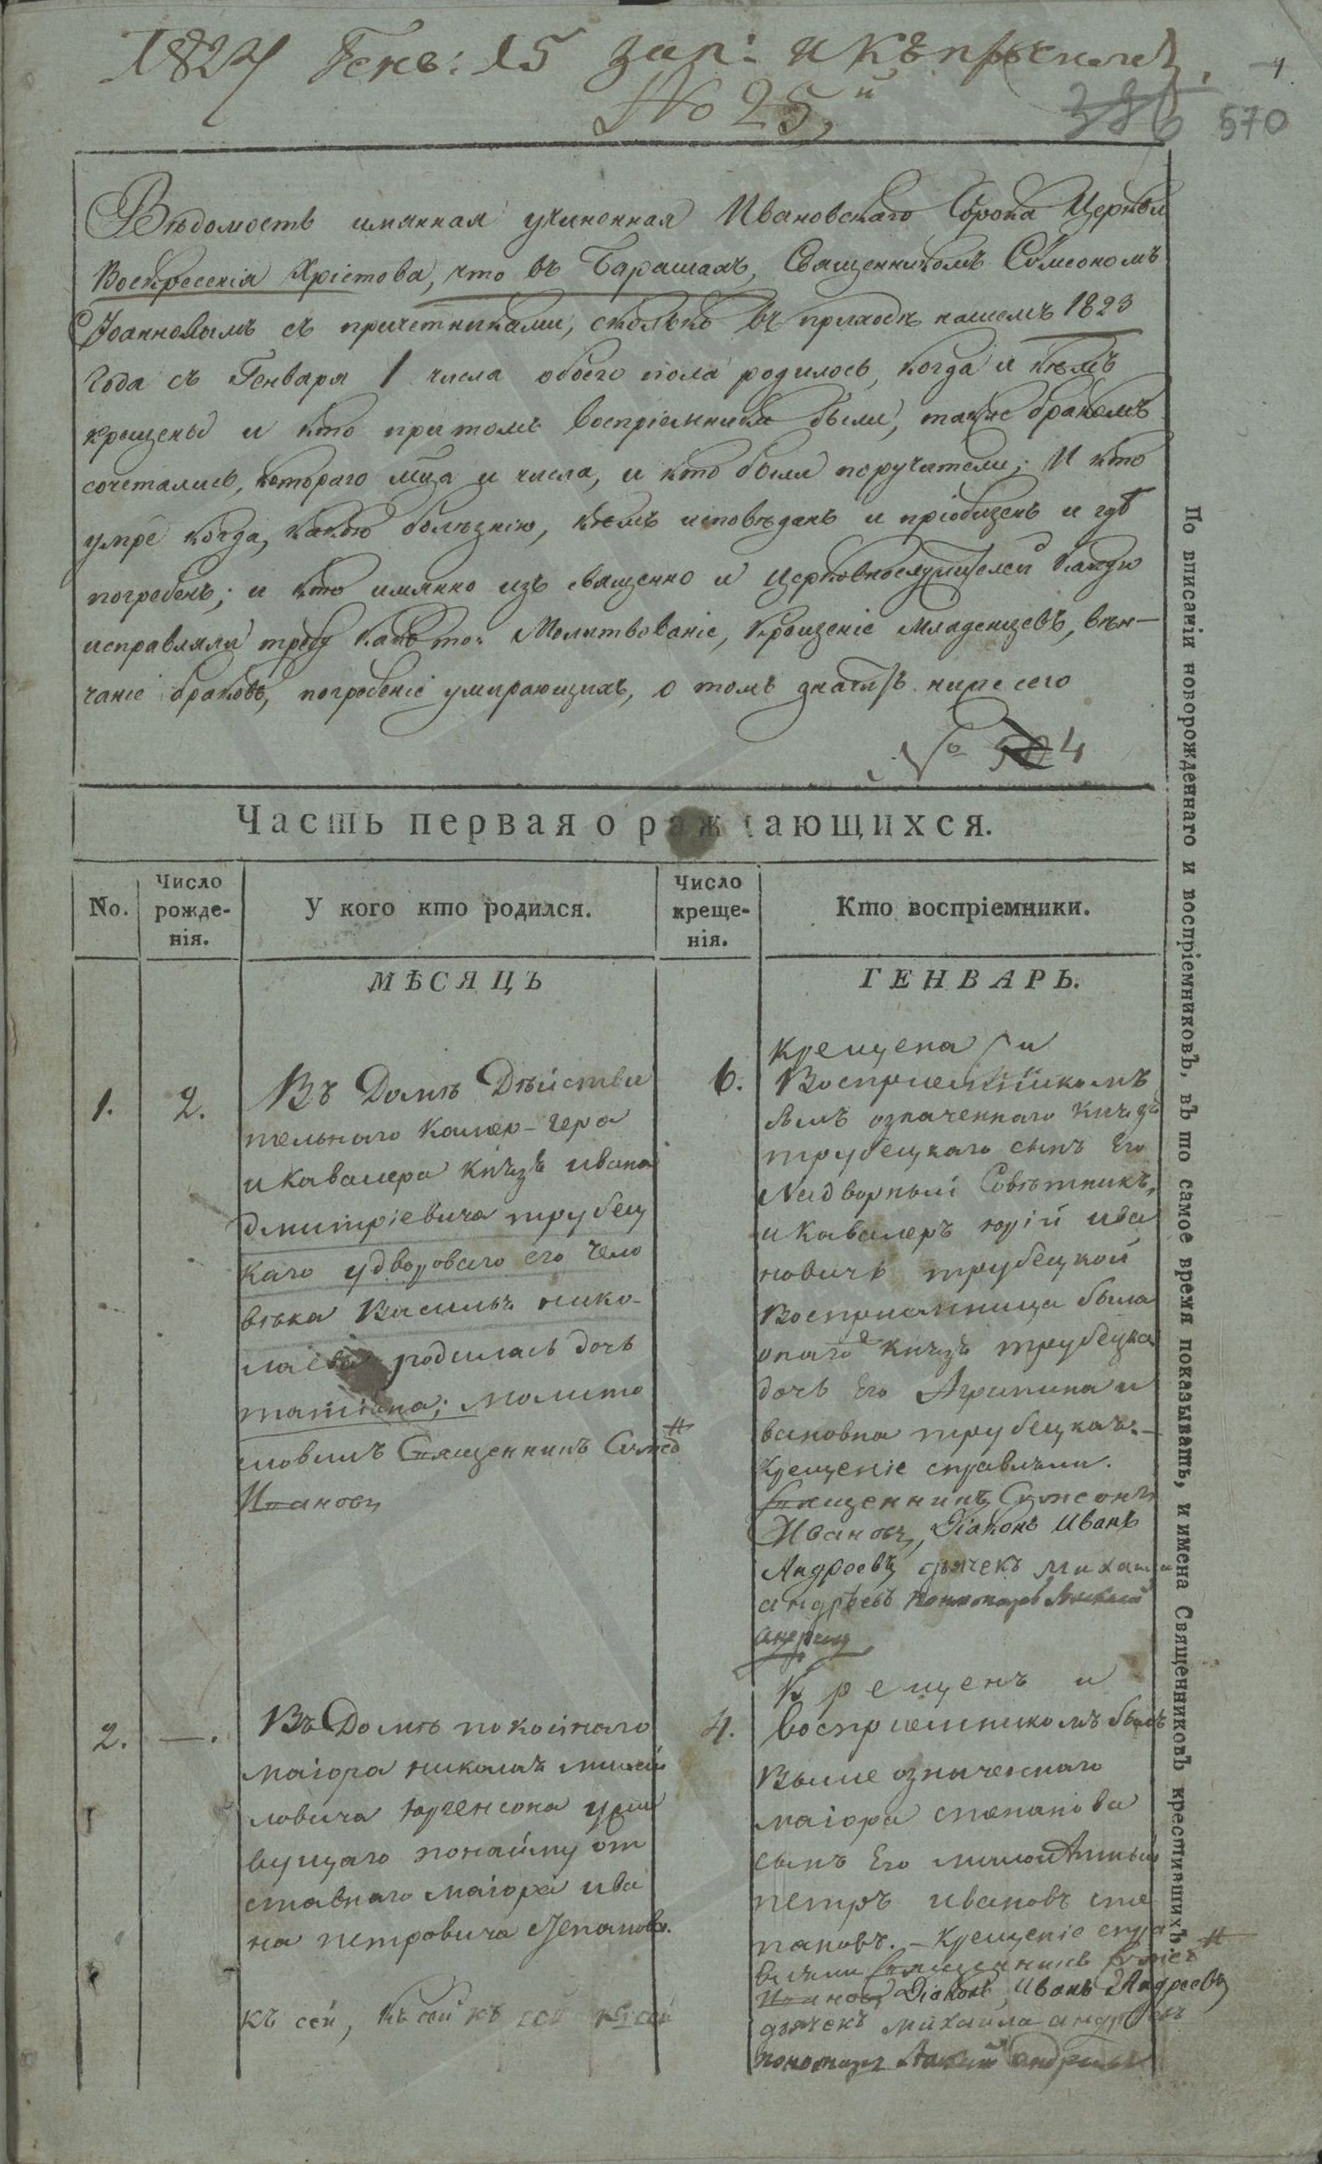 1824 Генв: 15 зап: и къ
№ 25,й
386 570
Вѣдомость имянная учиненная Ивановскаго Сорока Церкви
Воскресенія Хрістова, что въ Барашахъ, Священникомъ Сѵмеономъ
Іоанновымъ съ причетниками, сколько въ приходѣ нашемъ 1823
года съ Генваря 1 числа обоего пола родилось, когда и кѣмъ
крещены и кто притомъ воспріемники были, также бракомъ
сочетались, котораго мца и числа, и кто были поручители; И кто
умре когда, какою болѣзнію, кѣмъ исповѣданъ и пріобщенъ и гдѣ
погребенъ; и кто имянно изъ священно и церковнослужителей какую
исправляли требу какъ то: Молитвованіе, Крещеніе Младенцевъ, вѣн-
чаніе браковъ, погребеніе умирающихъ, о томъ значитъ ниже сего
№ 4
Часть первая о раждающихся.
No. Число рожде- нія. У кого кто родился. Число креще- нія. Кто воспріемники.
МѢСЯЦЪ ГЕНВАРЬ.
1. 2.
Въ Домѣ Дѣйстви
тельнаго Камер-гера
и Кавалера Князя ивана
дмитріевича трубец
каго у двороваго его чело
вѣка Василья нико-
лаева родилась дочь
татіана; молитв
ловилъ Священникъ Сѵмео
Ивановъ
6.
Крещена и
Восприемникомъ
былъ означеннаго Князя
трубецкаго сынъ Его
Надворный Совѣтникъ,
и Кавалеръ юрій ива
новичь трубецкой
Восприемница была
онаго Князя трубецка
дочь Его Агрипина и
вановна трубецкая.
Крещеніе справляли.
Священникъ Сѵмеонъ
Ивановъ, Діаконъ Иванъ
Андреевъ дьячекъ Михаила
андрѣевъ пономарь Алексей
андреевъ
2. —.
Въ Домѣ покойнаго
маіора николая михай
ловича юргенсона у жи
вущаго понайму от
ставнаго маіора ива
на петровича Степанова.
къ сей, къ сей къ сей къ сей
4.
Крещенъ и
восприемникомъ былъ
Выше означеннаго
маіора степанова
сынъ Его малолѣтный
петръ ивановъ сте
пановъ. – Крещеніе спра
вляли Священникъ Сѵмео
Ивановъ Діаконъ, Иванъ Андреевъ
дьячекъ михаила андрѣевъ
пономарь Алексей андреевъ
По вписаніи новорожденнаго и воспріемниковъ, въ то самое время показывать, и имена Священниковъ крестившихъ.